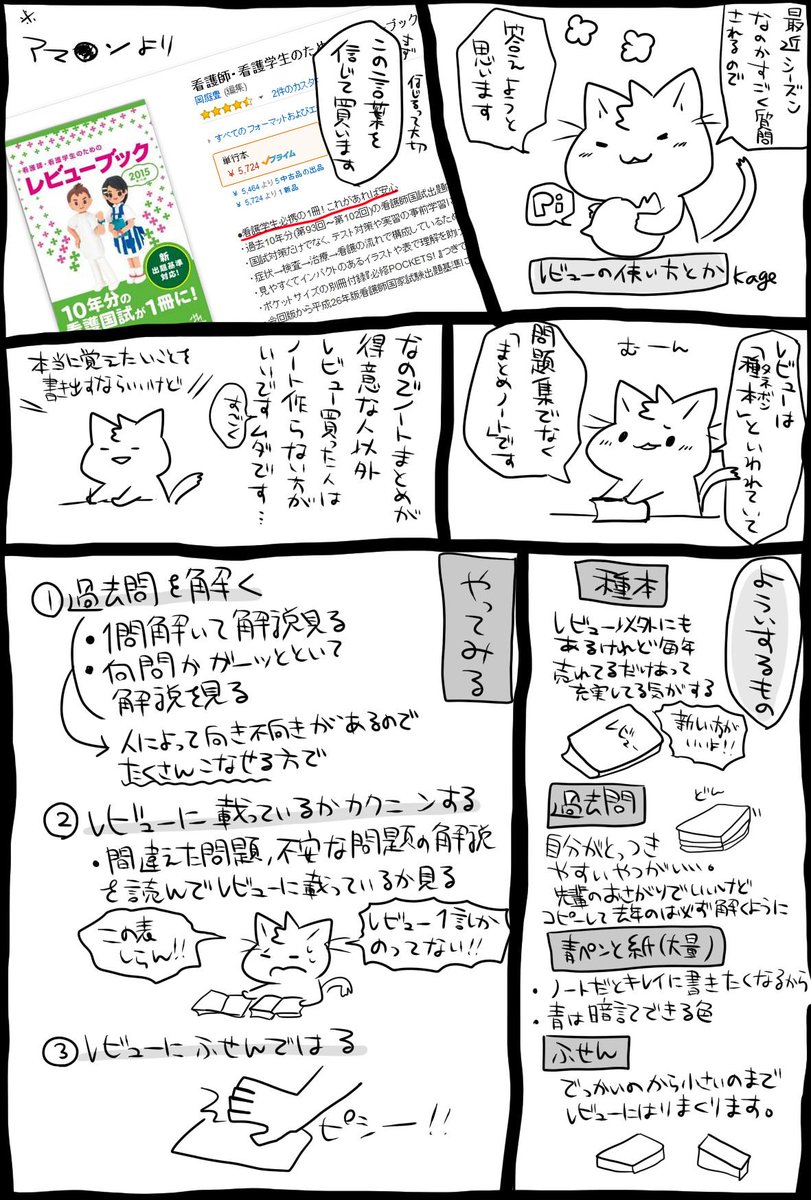 最近シーズン
なのかすごく質問
されるので
答えようと
思います
Pi
レビューの使い方とか
kage
※
アマ●ンより
まず
この言葉を
信じて買います
信じるって大切
看護師・看護学生のため
ブック
岡庭豊 (編集)
2件のカスタ
すべてのフォーマットおよびエ
単行本
¥ 5,724 プライム
¥ 5,464 より 5 中古品の出品
¥ 5,724 より 1 新品
●看護学生必携の1冊！これがあれば安心
・過去10年分(第93回〜第102回)の看護師国試出題
・国試対策だけでなく、テスト対策や実習の事前学習
・症状→検査→治療→看護の流れで構成しているため
・見やすくてインパクトのあるイラストや表で理解を助
・ポケットサイズの別冊付録『必修POCKETS!』つきで
・今回版から平成26年版看護師国家試験出題基準に
看護師・看護学生のための
レビューブック
2015
新
出題基準
対応!
10年分の
看護国試が1冊に!
レビューは
「種本」といわれていて
タネボン
むーん
問題集でなく
「まとめノート」です
なのでノートまとめが
得意な人以外
レビュー買った人は
ノート作らない方が
いいですムダです…
すごく
本当に覚えたいことを
書き出すならいいけど
よういするもの
種本
レビュー以外にも
あるけれど毎年
売れてるだけあって
充実してる気がする
レビュー
新しい方が
いいよ!!
過去問
どん
自分がとっつき
やすいやつがいい。
先輩のおさがりでいいけど
コピーして去年のは必ず解くように
青ペンと紙(大量)
・ノートだとキレイに書きたくなるから
・青は暗記できる色
ふせん
でっかいのから小さいのまで
レビューにはりまくります。
やってみる
①過去問を解く
・1問解いて解説見る
・何問かガーッとといて
解説を見る
人によって向き不向きがあるので
たくさんこなせる方で
②レビューに載っているかカクニンする
・間違えた問題,不安な問題の解説
を読んでレビューに載っているか見る
この表
しらん!!
レビュー1言しか
のってない!!
③レビューにふせんではる
ピシー!!